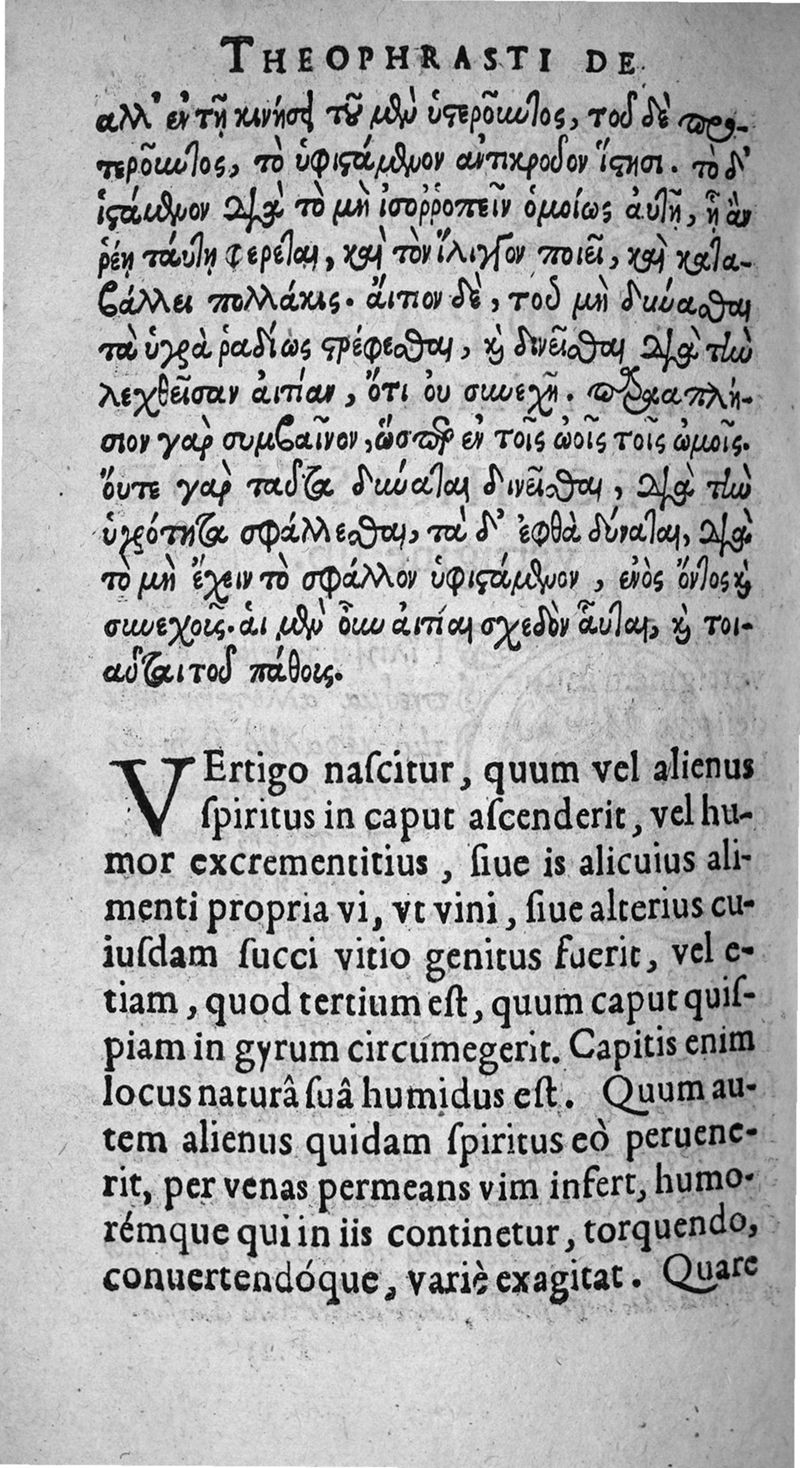 THEOPHRASTI DE
ἀλλ' ἐν τῇ κινήσει τοῦ μὲν ὑστεροῦντος, τοῦ δὲ προ-
τεροῦντος, τὸ ὑφιστάμενον ἀντικροῦον ἵστησι. τὸ δ'
ἱστάμενον διὰ τὸ μὴ ἰσορροπεῖν ὁμοίως ἀυτῇ, ᾗ ἂν
ῥέπῃ ταύτῃ φέρεται, καὶ τὸν ἴλιγγον ποιεῖ, καὶ κατα-
βάλλει πολλάκις. ἄιτιον δὲ, τοῦ μὴ δύνασθαι
τὰ ὑγρὰ ῥαδίως στρέφεσθαι, καὶ δινεῖσθαι διὰ τὴν
λεχθεῖσαν ἀιτίαν, ὅτι ὀυ συνεχῆ. παραπλή-
σιον γὰρ συμβαῖνον, ὥσπερ ἐν τοῖς ὠοῖς τοῖς ὠμοῖς.
ὄυτε γὰρ ταῦτα δύναται δινεῖσθαι, διὰ τὴν
ὑγρότητα σφάλλεσθαι, τὰ δ' ἐφθὰ δύναται, διὰ
τὸ μὴ ἔχειν τὸ σφάλλον ὑφιστάμενον, ἑνὸς ὄντος καὶ
συνεχοῦς. ἁι μὲν οὖν ἀιτίαι σχεδὸν ἇυται, καὶ τοι-
αῦται τοῦ πάθους.
VErtigo naſcitur, quum vel alienus
ſpiritus in caput aſcenderit, vel hu-
mor excrementitius, ſiue is alicuius ali-
menti propria vi, vt vini, ſiue alterius cu-
iuſdam ſucci vitio genitus fuerit, vel e-
tiam, quod tertium eſt, quum caput quiſ-
piam in gyrum circumegerit. Capitis enim
locus naturâ ſuâ humidus eſt. Quum au-
tem alienus quidam ſpiritus eò peruene-
rit, per venas permeans vim infert, humo-
rémque qui in iis continetur, torquendo,
conuertendóque, variè exagitat. Quare